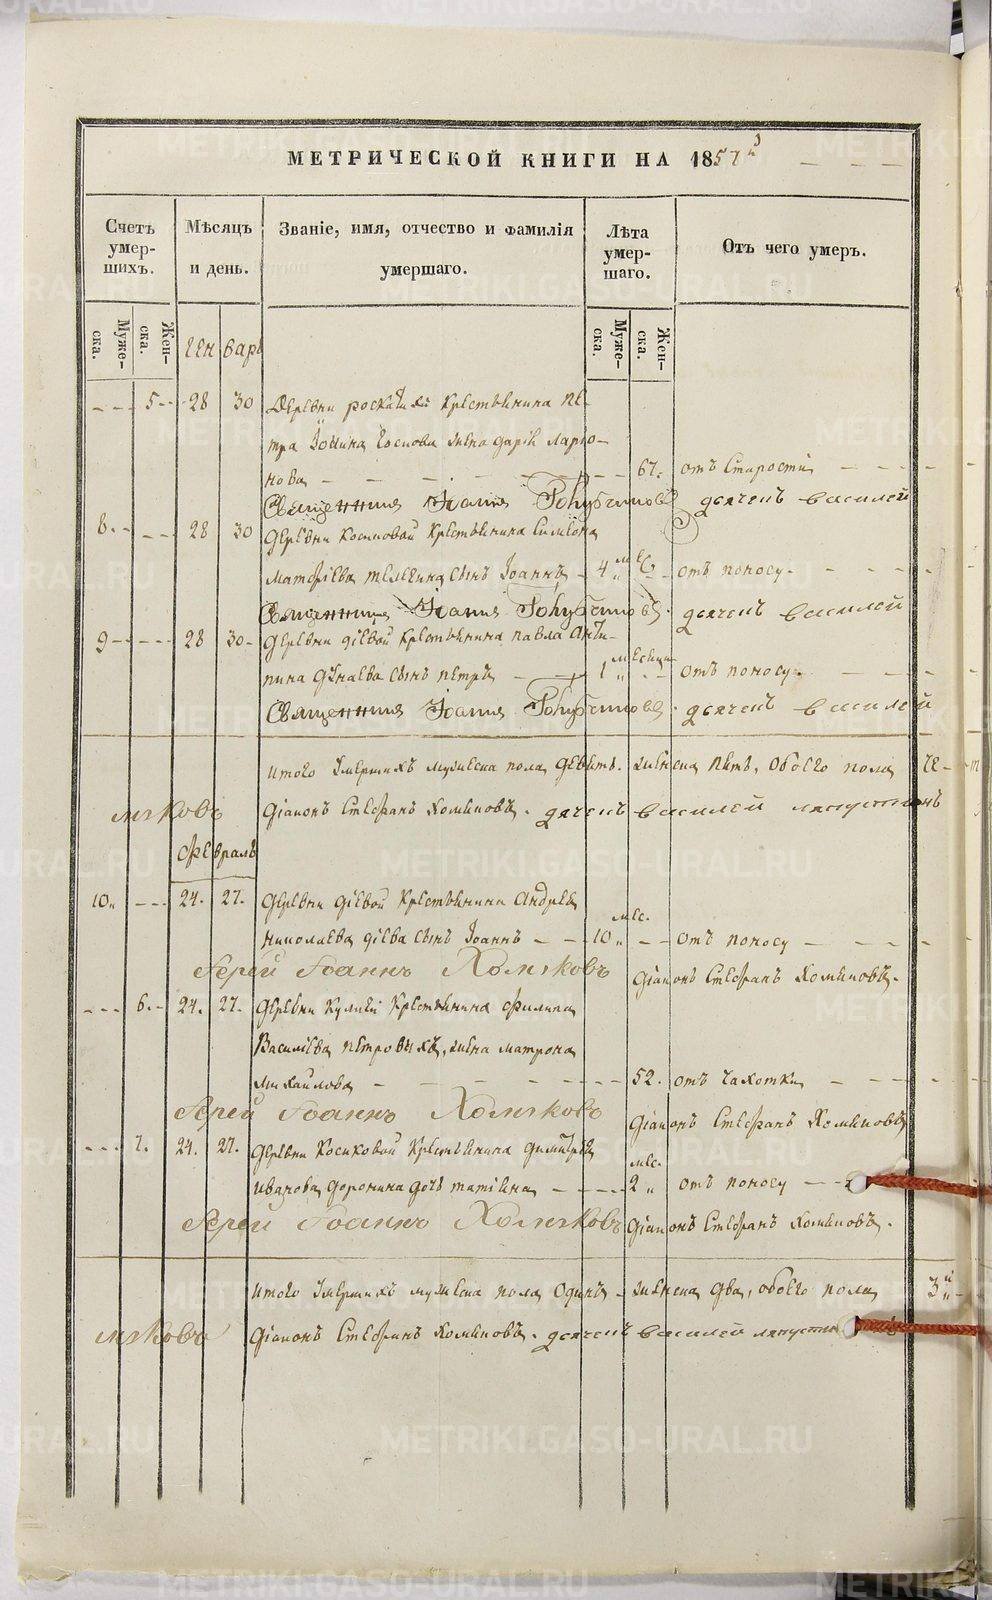 МЕТРИЧЕСКОЙ КНИГИ НА 1857
Счетъ умер-шихъ.
Мѣсяцъ и день.
Званіе, имя, отчество и фамилія умершаго.
Лѣта умер-шаго.
Отъ чего умеръ.
Муже-ска.
Жен-ска.
Муже-ска.
Жен-ска.
Генварь
5 28 30 Деревни крестьянина Пе-
тра жена Дарья Ларіо-
нова 67. отъ Старости
Священникъ Іоаннъ дьячекъ Василей
8. 28 30 Деревни Косиковой Крестьянина Симеона
сынъ Іоаннъ 4 мес. отъ поносу.
Священникъ Іоаннъ дьячекъ Василей
9 28 30 Деревни Діевой Крестьянина Павла Анти-
пина сынъ Петръ 1 месеца отъ поносу.
Священникъ Іоаннъ дьячекъ Василей
Итого Умершихъ мужеска пола девять. женска пять, Обоего пола 14
мяковъ Діаконъ Стефанъ Хомяковъ. дячекъ Василей ляпустинъ
Февраль
10. 24. 27. Деревни Діевой Крестьянина Андрея
Николаева Діева сынъ Іоаннъ 10 мес. отъ поносу
Іерей Іоаннъ Хомяковъ Діаконъ Стефанъ Хомяковъ.
6. 24. 27. Деревни Крестьянина Филипа
Василіева Петровыхъ, жена Матрона
Михайлова 52. отъ Чахотки
Іерей Іоаннъ Хомяковъ Діаконъ Стефанъ Хомяковъ
7. 24. 27. Деревни Косиковой Крестьянина Димитрія
Иванова Доронина дочь Татіяна 2 мес. отъ поносу
Іерей Іоаннъ Хомяковъ Діаконъ Стефанъ Хомяковъ.
Итого Умершихъ мужеска пола Одинъ женска два, обоего пола 3
мяковъ Діаконъ Стефанъ Хомяковъ. дьячекъ Василей
METRIKI.GASO-URAL.RU